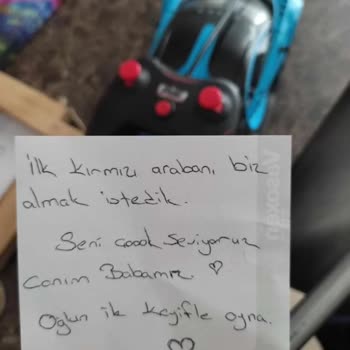 ilk kırmızı arabanı biz
almak istedik.
Seni çoook seviyoruz
Canım Babamız. ♡
Oğlun ile keyifle oyna.
♡